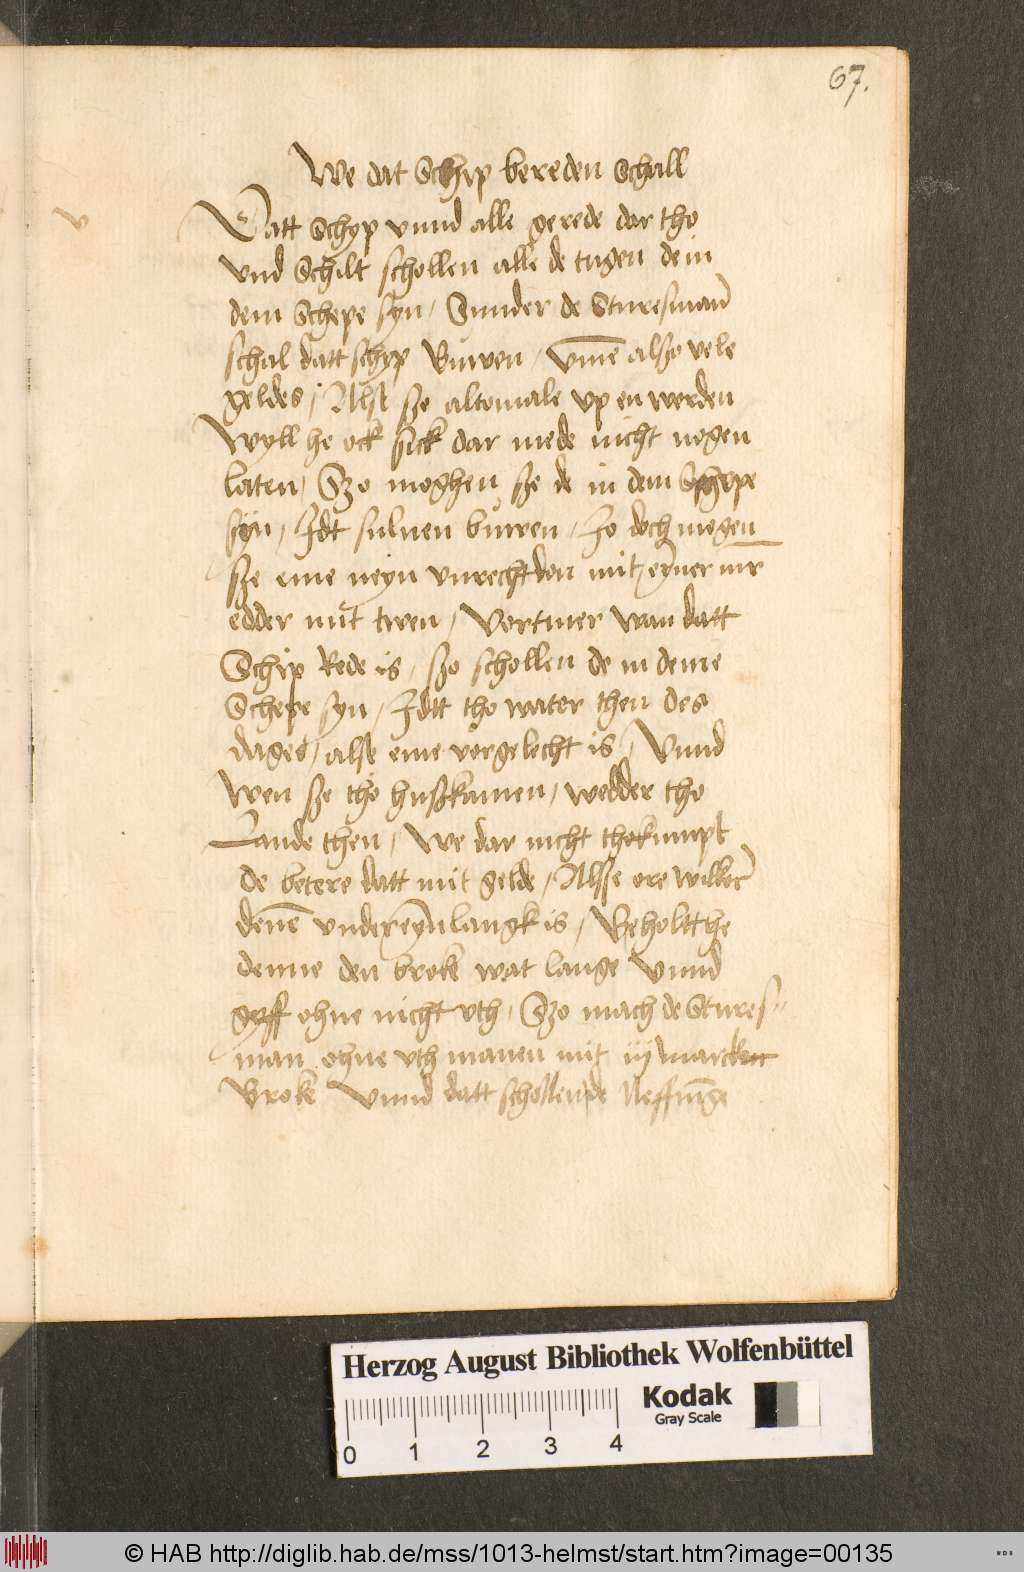 67.
We dat Schip bereden Schall
Datt Schyp vnnd alle gerede dar tho
vnd Schilt schollen alle de tugen de in
dem Schepe syn / Sunder de Sturesman
schal datt schyp Buwen / vmē alszo vele
geldes / Alst sze altomale vp en werden
Wyll he ock sick dar mede nicht nogen
laten / Szo moghen sze de in dem Schepe
syn / Jdt suluen buwen / Jo doch mogen
sze eme neyn vnrecht don mit eyner nir
edder mit twen / Vortmer wan datt
Schip Rede is / szo schollen de in deme
Schepe syn / Jdtt tho water then des
dages / alse eme vorgelecht is / Vnnd
Wen sze tho huszkamen / wedder tho
Lande then / We dar nicht thokumpt
de betere datt mit gelde / Alsse ore wilkor
denē vnder eyn langk is / Beholtt he
denne den broke wat lange Vnnd
gyff ohne nicht vth / Szo mach de Stures-
man ohne vth manen mit iij marcken
Broke Vnnd datt schollen de Neffninge
Herzog August Bibliothek Wolfenbüttel
Kodak
Gray Scale
0 1 2 3 4
© HAB http://diglib.hab.de/mss/1013-helmst/start.htm?image=00135